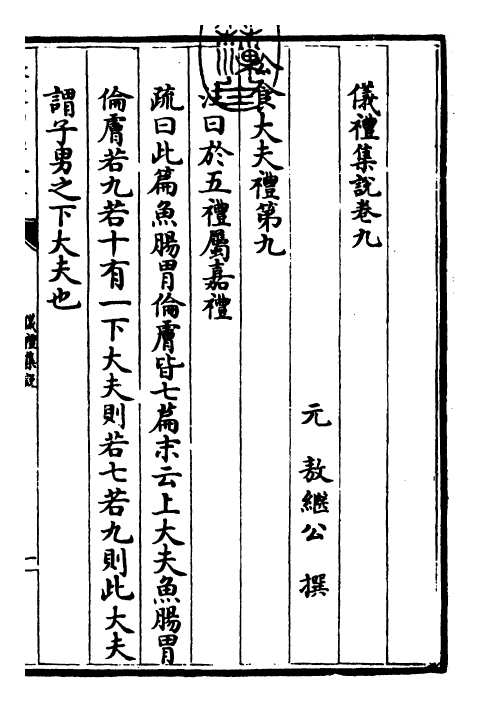 儀禮集說卷九
元 敖繼公 撰
公食大夫禮第九
注曰於五禮屬嘉禮
疏曰此篇魚腸胃倫膚皆七篇末云上大夫魚腸胃
倫膚若九若十有一下大夫則若七若九則此大夫
謂子男之下大夫也
儀禮集說
一